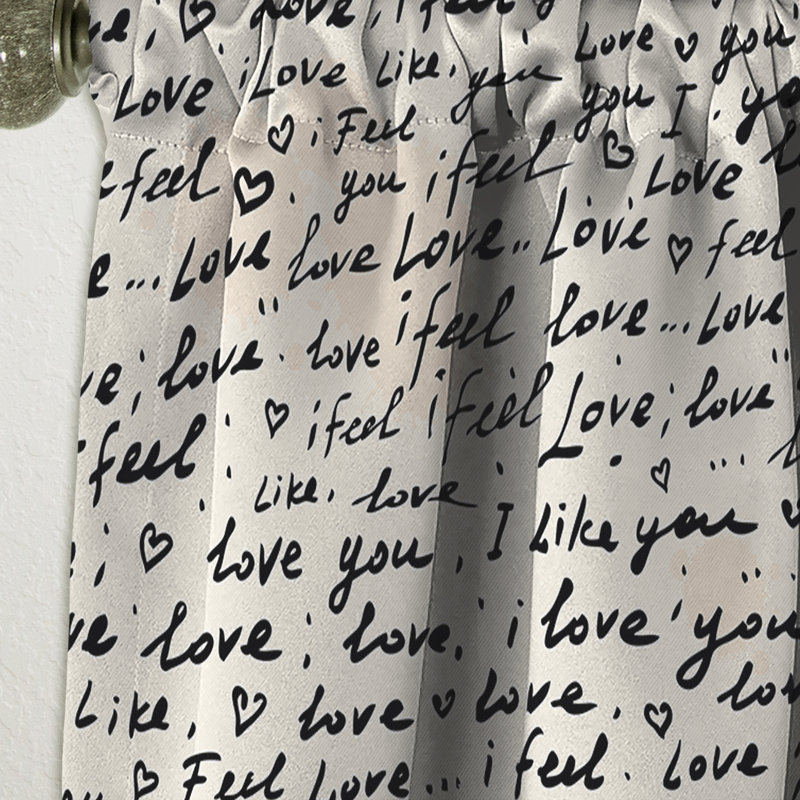 Love, i feel
Love ♡ you
Love, i Love Like. you
you I. you
♡ ; Feel
feel ♡. you i feel ♡ Love
... Love "love Love.. Love ♡ feel
; love. love i feel love... Love
♡ i feel i feel Love; love"
feel
♡ ...
Like. love
; ♡ love you, I Like you ♡
love; love, i love 'you
Like, ♡ love ♡ love, ♡
♡ Feel Love... i feel. Love